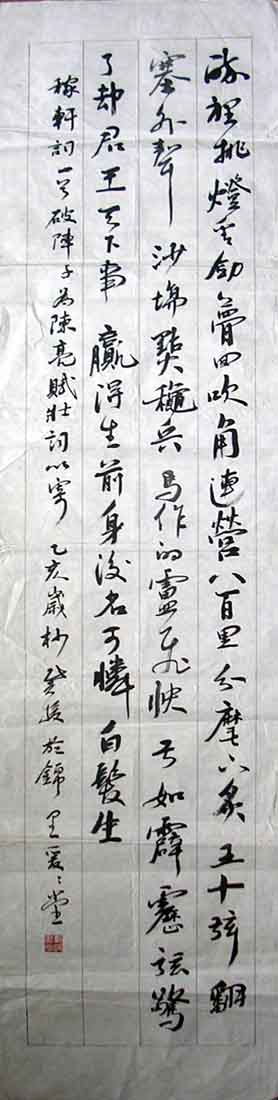 醉裡挑燈看劍夢回吹角連營八百里分麾下炙五十弦翻
塞外聲沙場點穐兵馬作的盧飛快弓如霹靂弦驚
了却君王天下事贏得生前身後名可憐白髮生
稼軒詞一首破陣子為陳亮賦壯詞以寄乙亥歲杪於錦里堂